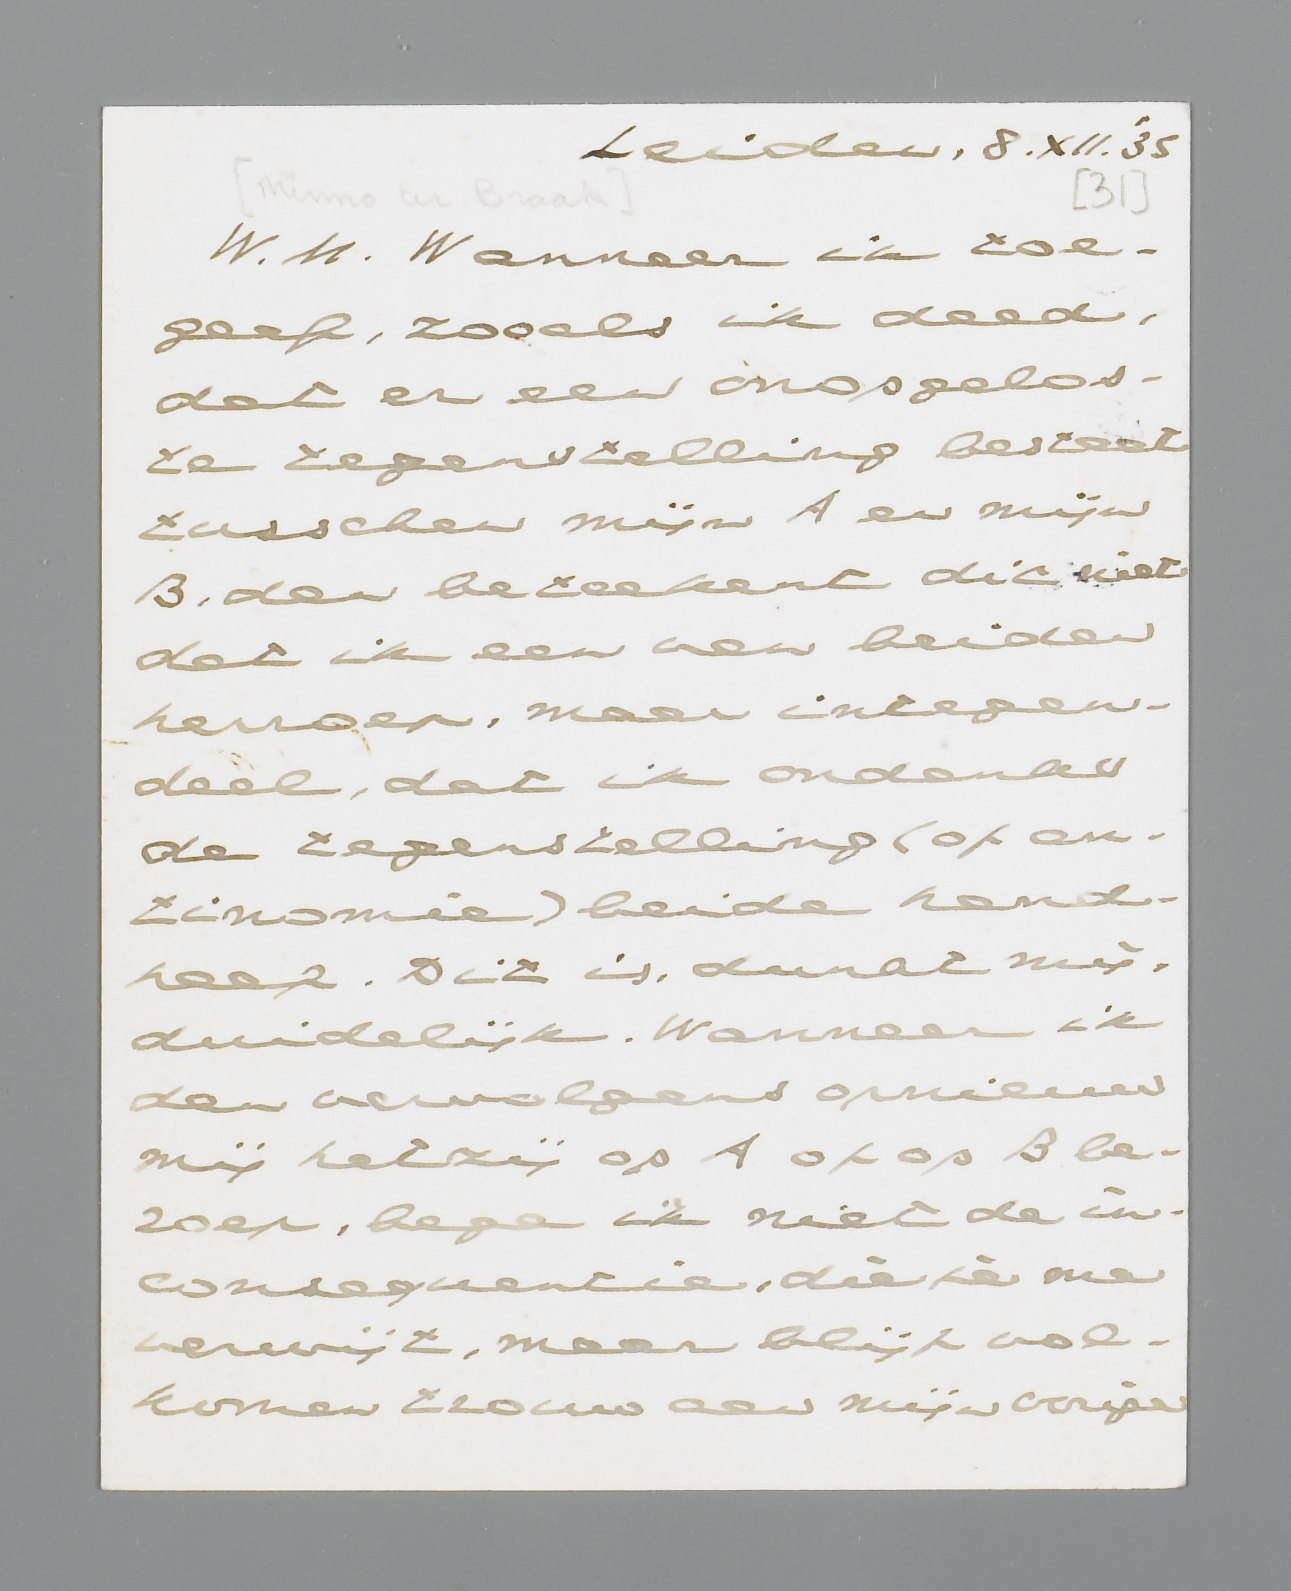 Leiden, 8.XII.'35
[Menno ter Braak]
[31]
W. H. Wanneer ik toe-
geef, zooals ik deed,
dat er een onopgelos-
te tegenstelling bestaat
tusschen mijn A en mijn
B, dan beteekent dit niet
dat ik een van beiden
herroep, maar integen-
deel, dat ik ondanks
de tegenstelling (of an-
tinomie) beide hand-
haaf. Dit is, dunkt mij,
duidelijk. Wanneer ik
dan vervolgens opnieuw
mij hetzij op A of op B be-
roep, bega ik niet de in-
consequentie, die je me
verwijt, maar blijf vol-
komen trouw aan mijn vorige